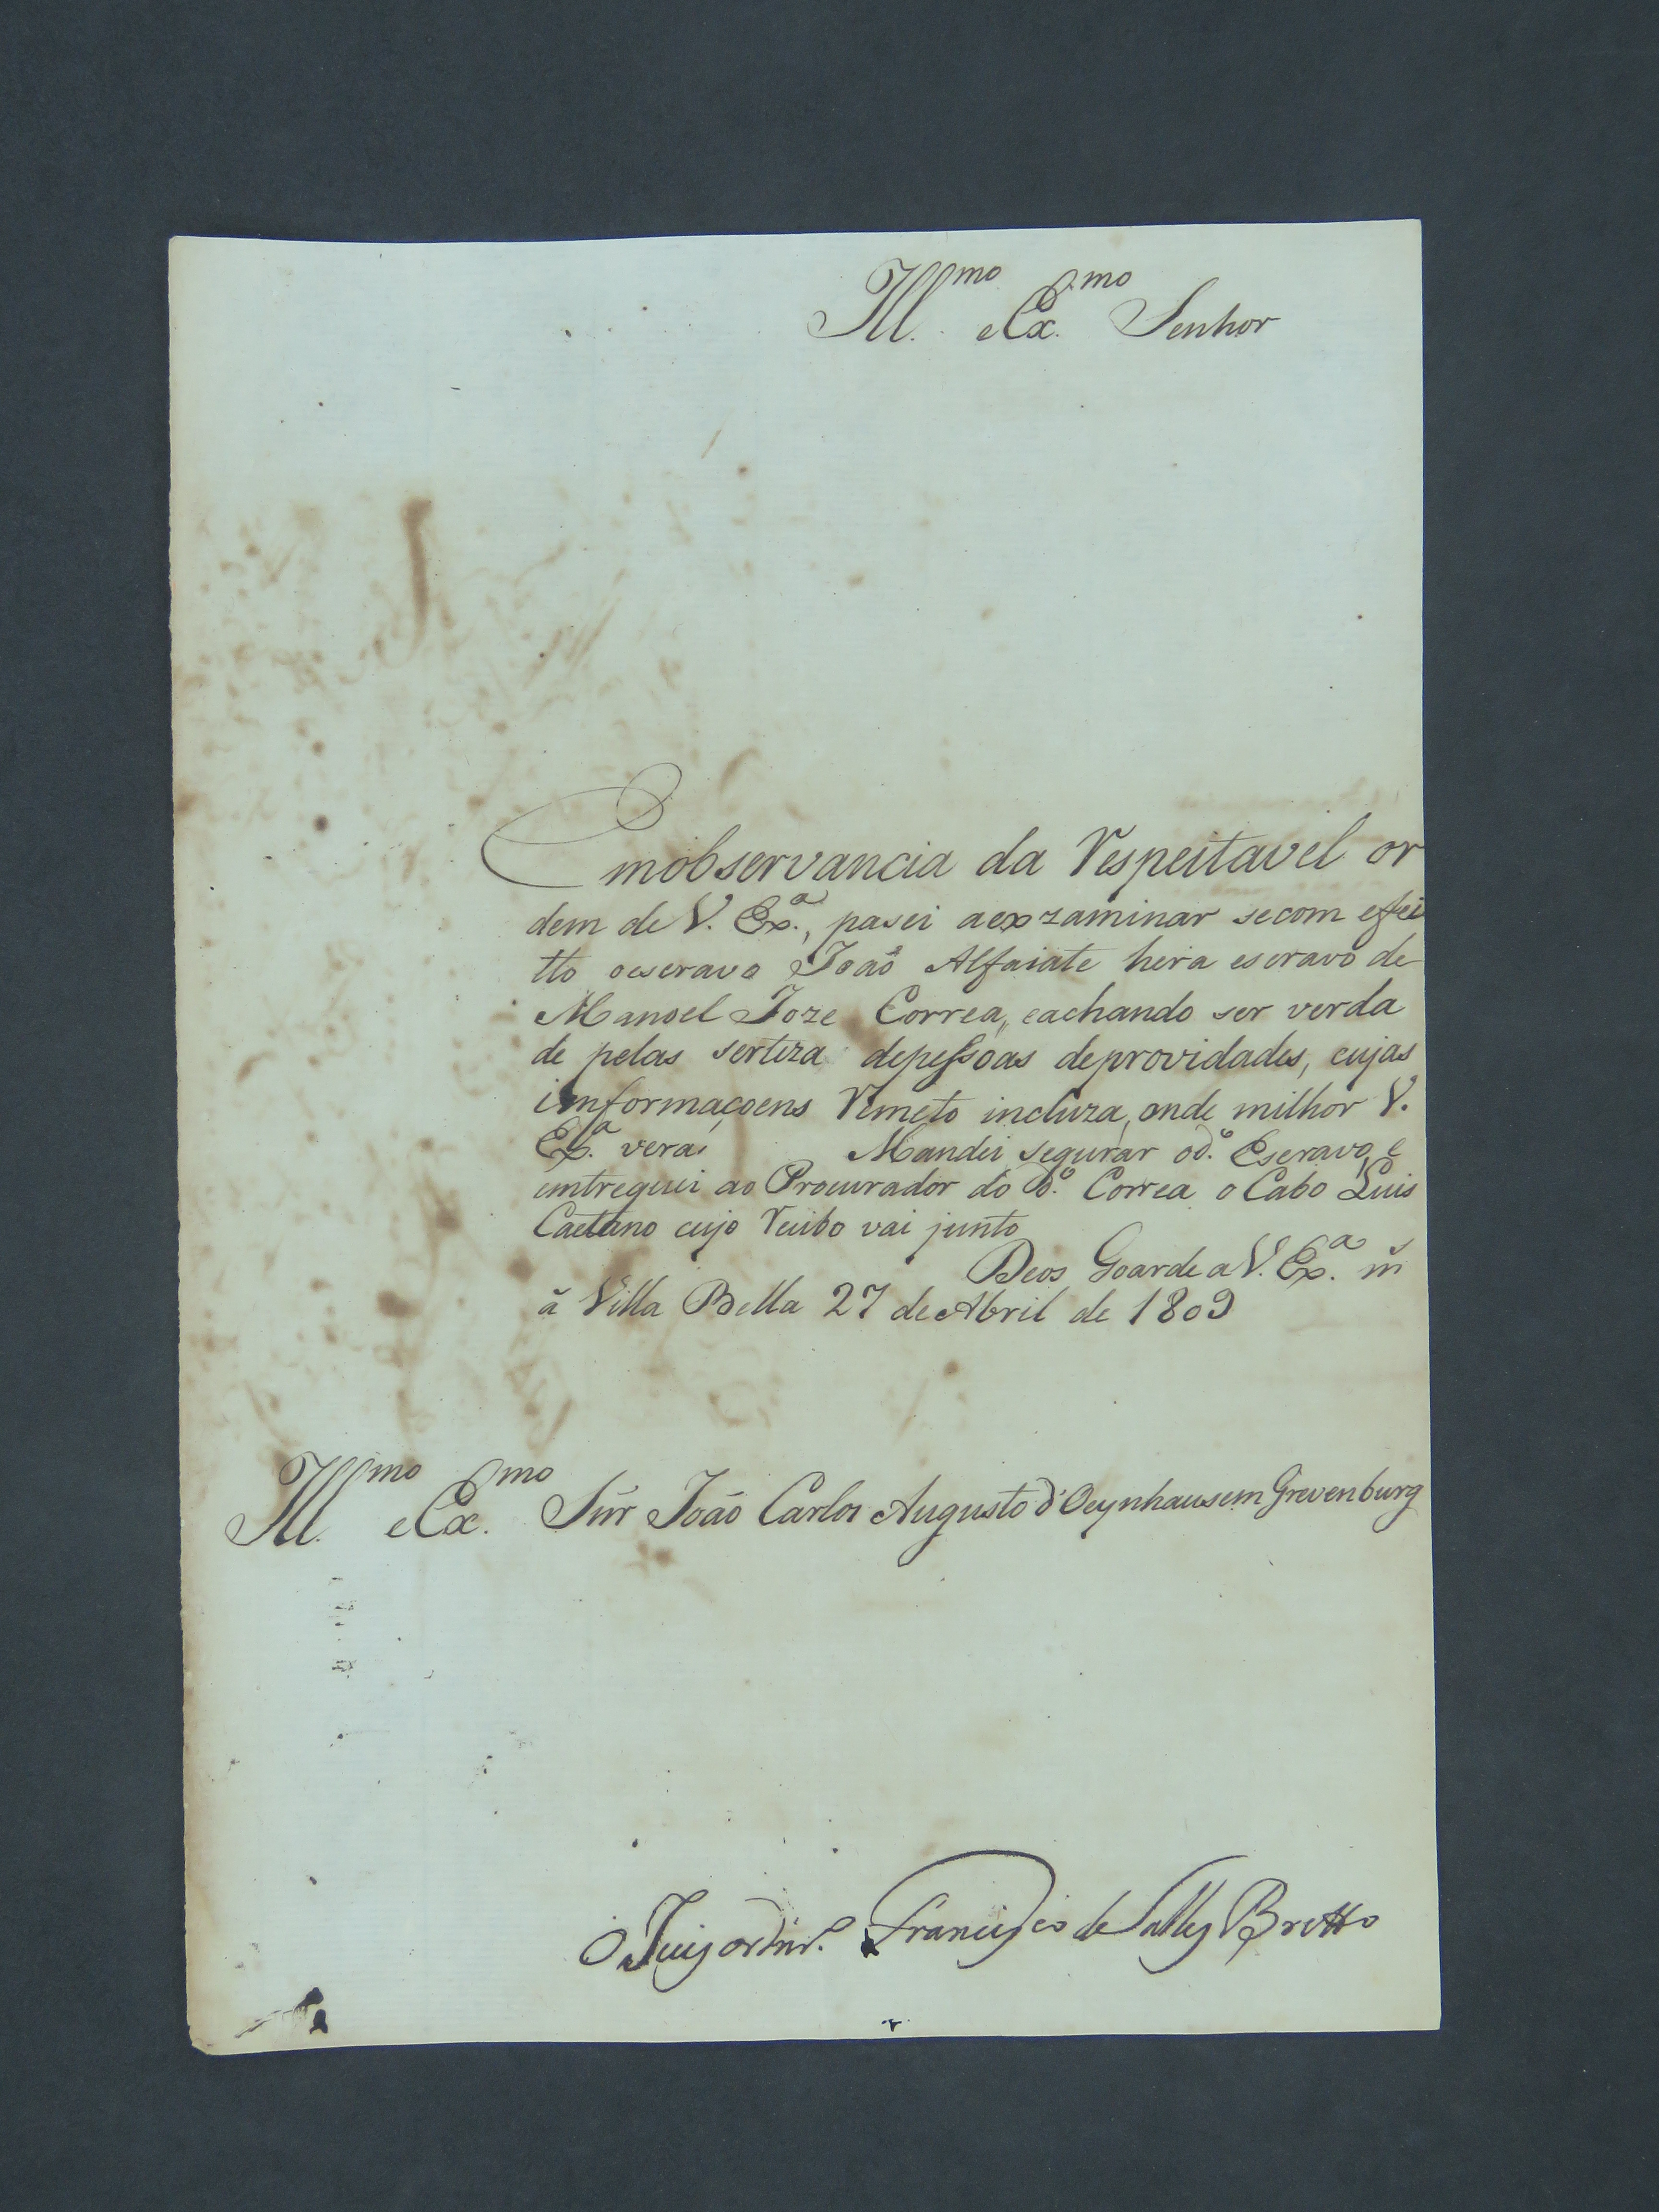 Ill.mo e Ex.mo Senhor
Emobservancia da Respeitavel or
dem de V. Ex.a, pasei aexzaminar secom efei
tto oescravo João Alfaiate hera escravo de
Manoel Joze Correa, eachando ser verda
de pelas serteza depessoas deprovidades, cujas
imformaçoens Remeto incluza, onde milhor V.
Ex.a verá Mandei segurar od.o Escravo, e
entreguei ao Procurador do d.o Correa o Cabo Luis
Caetano cujo Recibo vai junto
Deos Goarde a V. Ex.a m.s
ã Villa Bella 27 de Abril de 1809
Ill.mo e Ex.mo Sñr João Carlos Augusto d'Oeynhausem Grevenburg
O Juiz ordin.o Francisco de Salles Britto